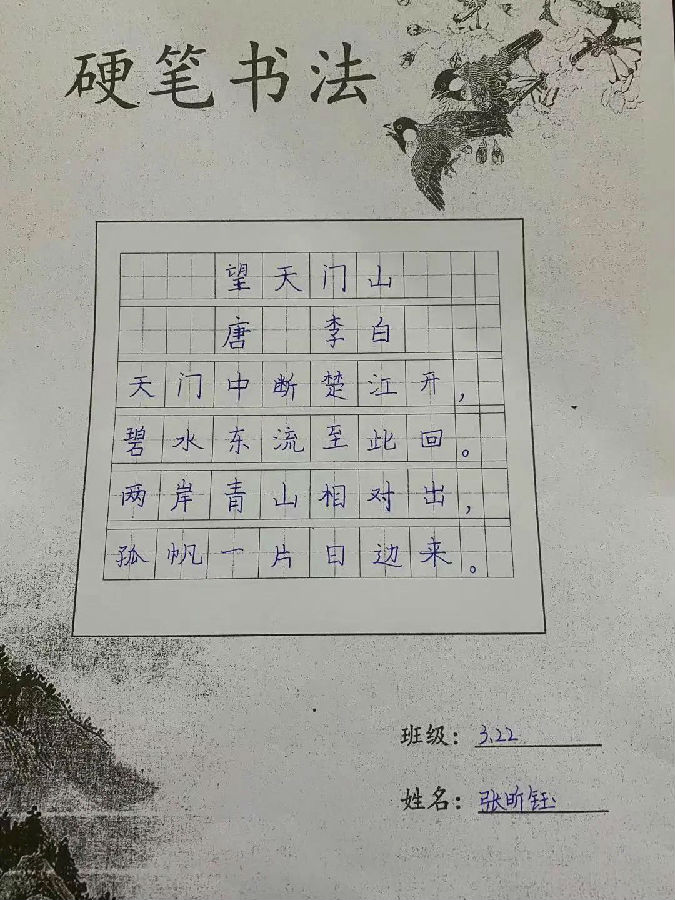 硬笔书法
望天门山
唐 李白
天门中断楚江开，
碧水东流至此回。
两岸青山相对出，
孤帆一片日边来。
班级：3.22
姓名：张昕钰